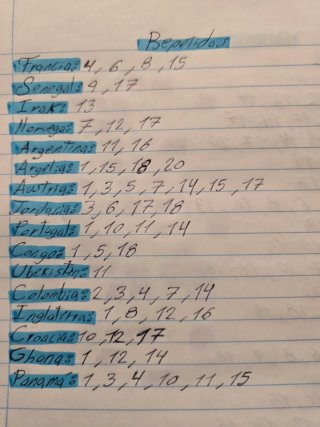 Repetidas
Francia: 4, 6, 8, 15
Senegal: 9, 17
Irak: 13
Noruega: 7, 12, 17
Argentina: 11, 16
Argelia: 1, 15, 18, 20
Austria: 1, 3, 5, 7, 14, 15, 17
Jordania: 3, 6, 17, 18
Portugal: 1, 10, 11, 14
Congo: 1, 5, 18
Uzbekistán: 11
Colombia: 2, 3, 4, 7, 14
Inglaterra: 1, 8, 12, 16
Croacia: 10, 12, 17
Ghana: 1, 12, 14
Panamá: 1, 3, 4, 10, 11, 15